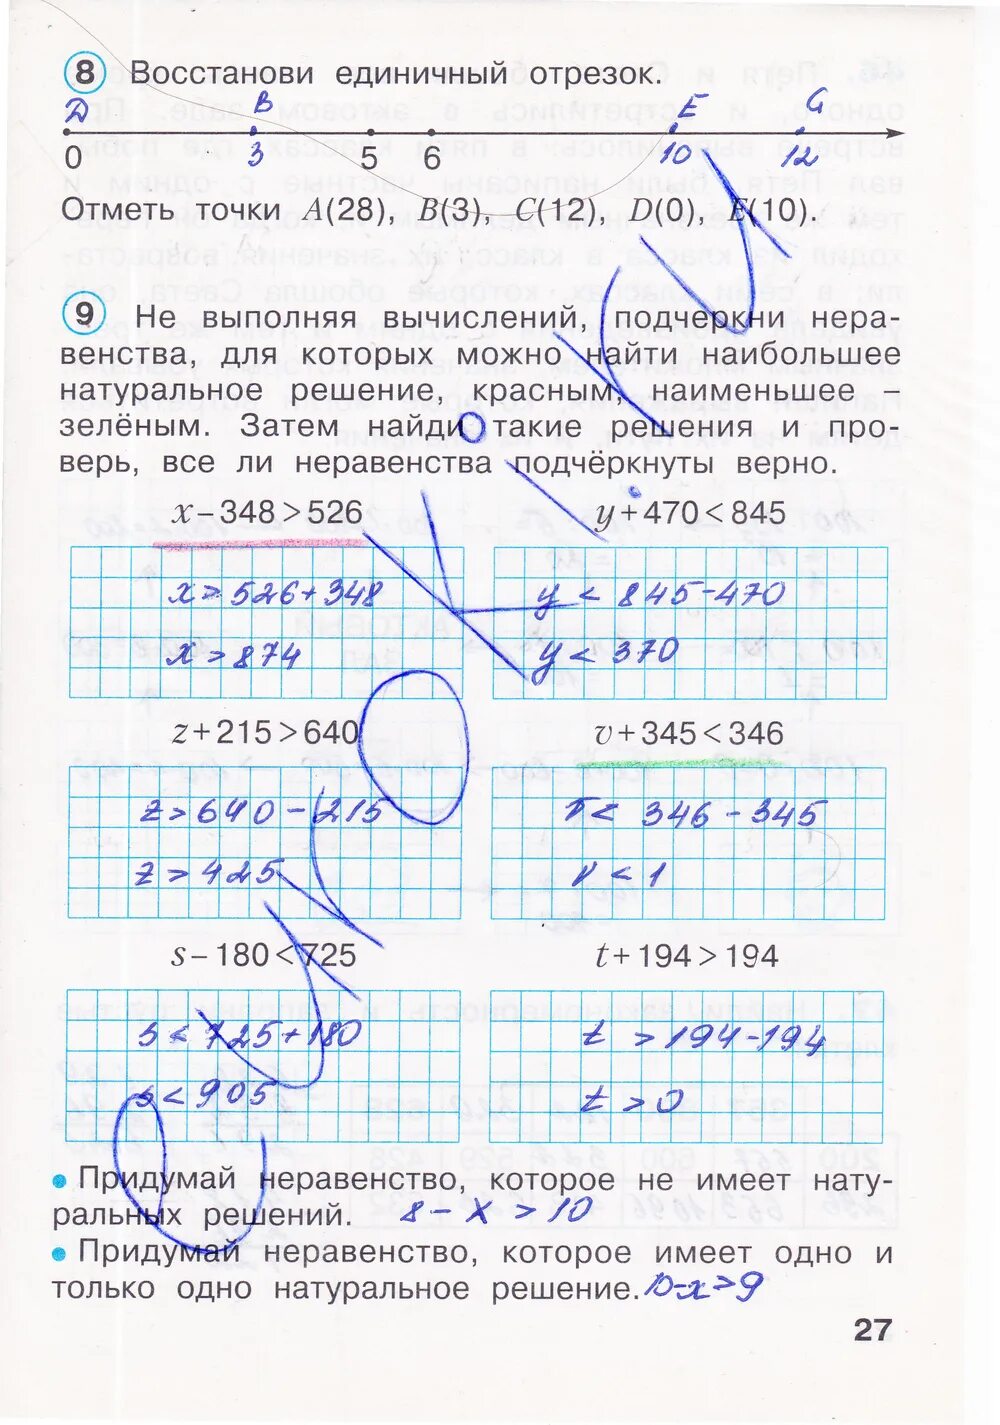 8 Восстанови единичный отрезок.
D B E C
0 3 5 6 10 12
Отметь точки A(28), B(3), C(12), D(0), E(10).
9 Не выполняя вычислений, подчеркни нера-
венства, для которых можно найти наибольшее
натуральное решение, красным, наименьшее –
зелёным. Затем найди такие решения и про-
верь, все ли неравенства подчёркнуты верно.
x – 348 > 526 y + 470 < 845
x > 526 + 348 y < 845 - 470
x > 874 y < 370
z + 215 > 640 v + 345 < 346
z > 640 - 215 v < 346 - 345
z > 425 v < 1
s – 180 < 725 t + 194 > 194
s < 725 + 180 t > 194 - 194
s < 905 t > 0
• Придумай неравенство, которое не имеет нату-
ральных решений. 8 - x > 10
• Придумай неравенство, которое имеет одно и
только одно натуральное решение. 10 - x > 9
27